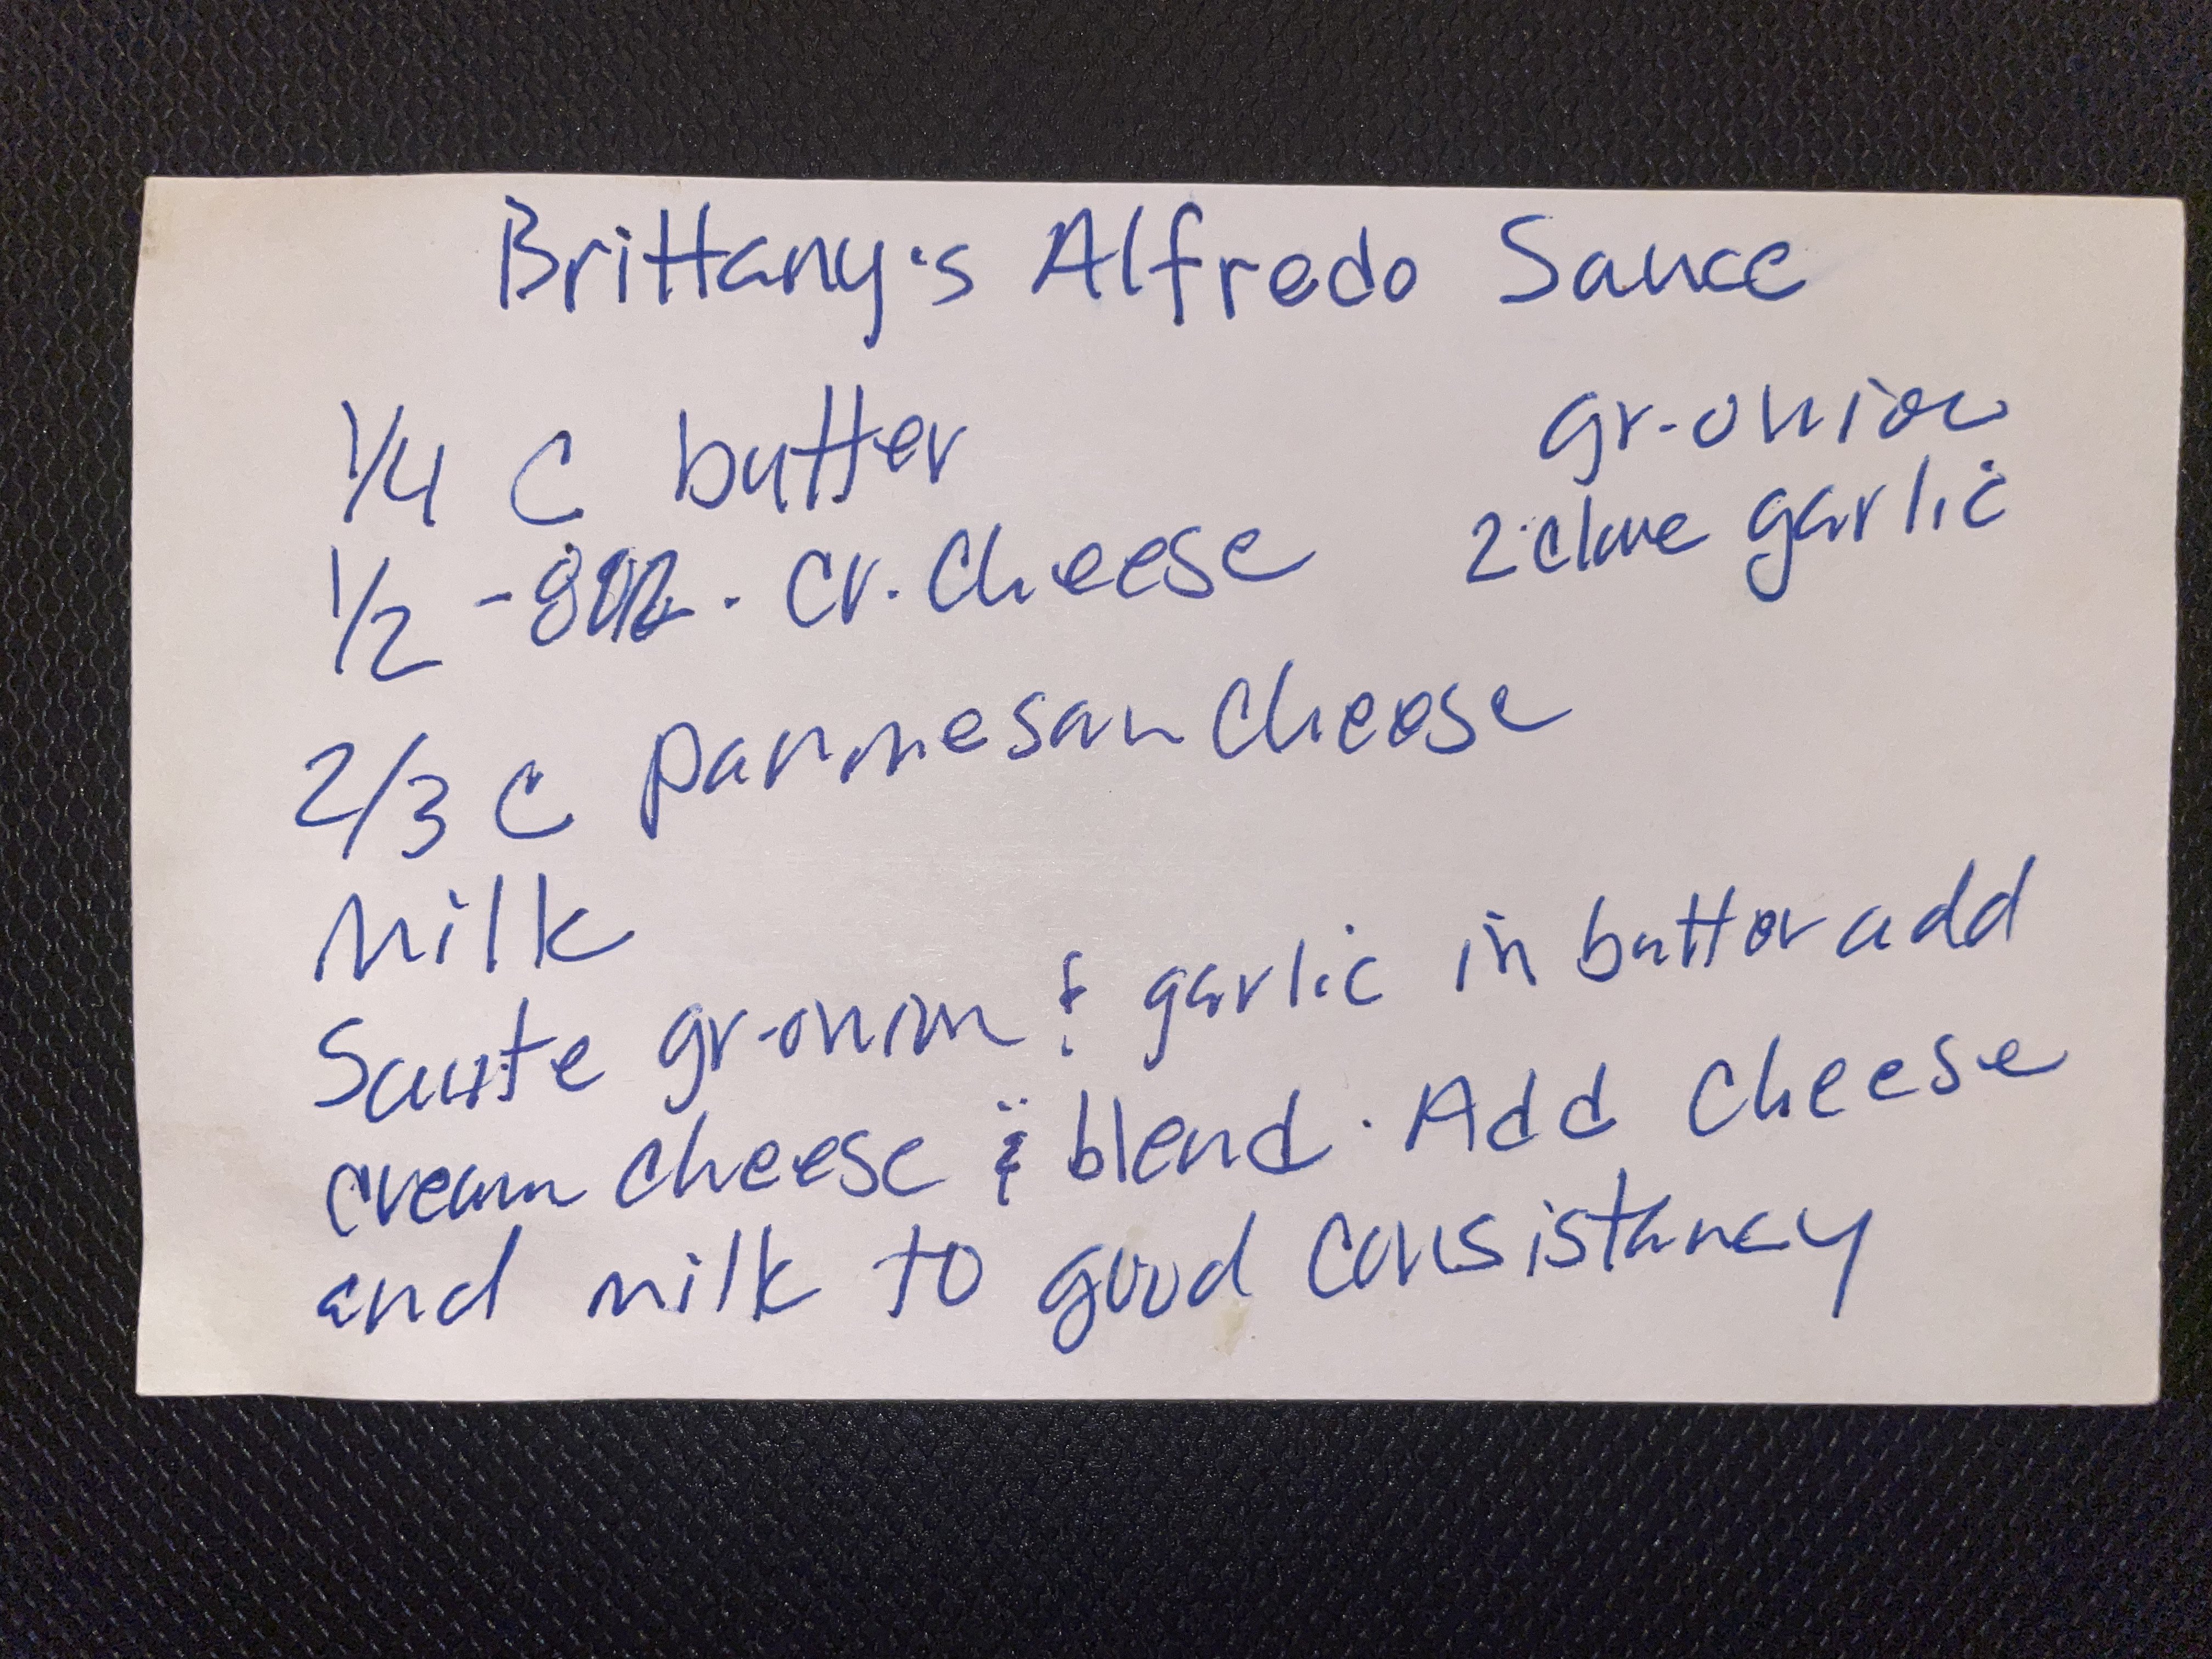 Brittany's Alfredo Sauce
1/4 C butter
gr-onion
1/2 - 8oz. cr. cheese
2 clove garlic
2/3 C parmesan cheese
milk
Saute gr-onion & garlic in butter add
cream cheese & blend. Add cheese
and milk to good consistancy